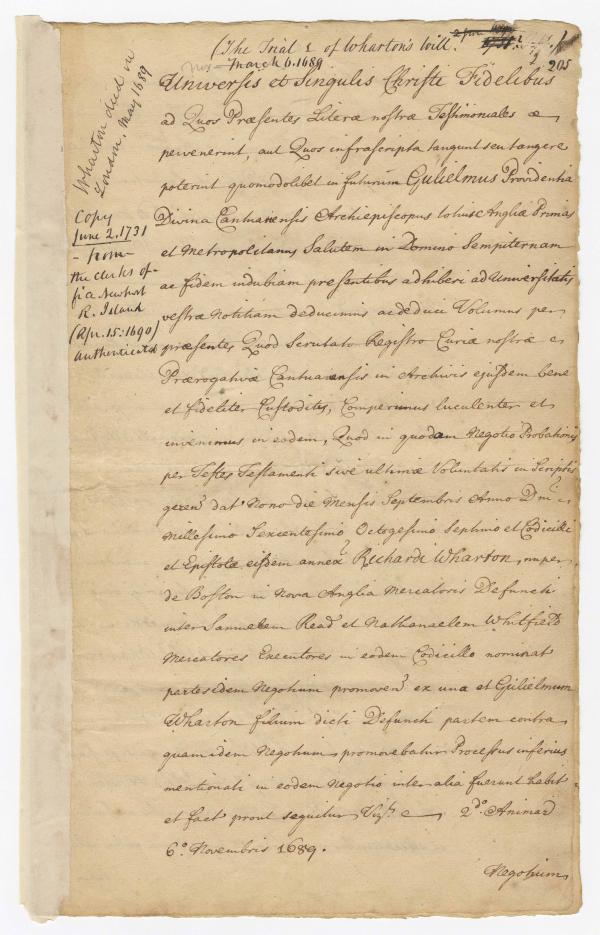 (The Trial & of Wharton's Will.
Nov March 6. 1689
205
Wharton died in
London, May 1689
Copy
June 2, 1731
- from -
the clerks off-
R. Island
(Apr. 15: 1690)
authenticated
Universis et Singulis Christi Fidelibus
ad Quos Præsentes Literæ nostræ Testimoniales
pervenerint, aut Quos infrascripta tangunt seu tangere
poterint quomodolibet in futurum Gulielmus Providentia
Divina Cantuariensis Archiepiscopus totius Angliæ Primas
et Metropolitanus Salutem in Domino Sempiternam
ac fidem indubiam præsentibus adhiberi ad Universitatis
vestræ Notitiam deducimus ac deduci Volumus per
præsentes Quod Scrutato Registro Curiæ nostræ
Prærogativæ Cantuariensis in Archivis ejusdem bene
et fideliter Custoditis, Comperimus luculenter et
invenimus in eodem, Quod in quodam Negotio Probationis
per Testes Testamenti sive ultimæ Voluntatis in Scriptis
geren? dat Nono die Mensis Septembris Anno Dm?
Millesimo Sexcentesimo Octogesimo Septimo et Codicilli
et Epistolæ eisdem annex? Richardi Wharton, nuper
de Boston in Nova Anglia Mercatoris Defuncti
inter Samuelem Read et Nathanaelem Whitfield
Mercatores Executores in eodem Codicillo nominat
partes idem Negotium promoven? ex una et Gulielmum
Wharton filium dicti Defuncti partem contra
quam idem Negotium promovebatur Processus inferius
mentionati in eodem Negotio inter alia fuerunt habit
et fact prout sequitur Vizt. 2do. Animad
6o. Novembris 1689.
Negotium